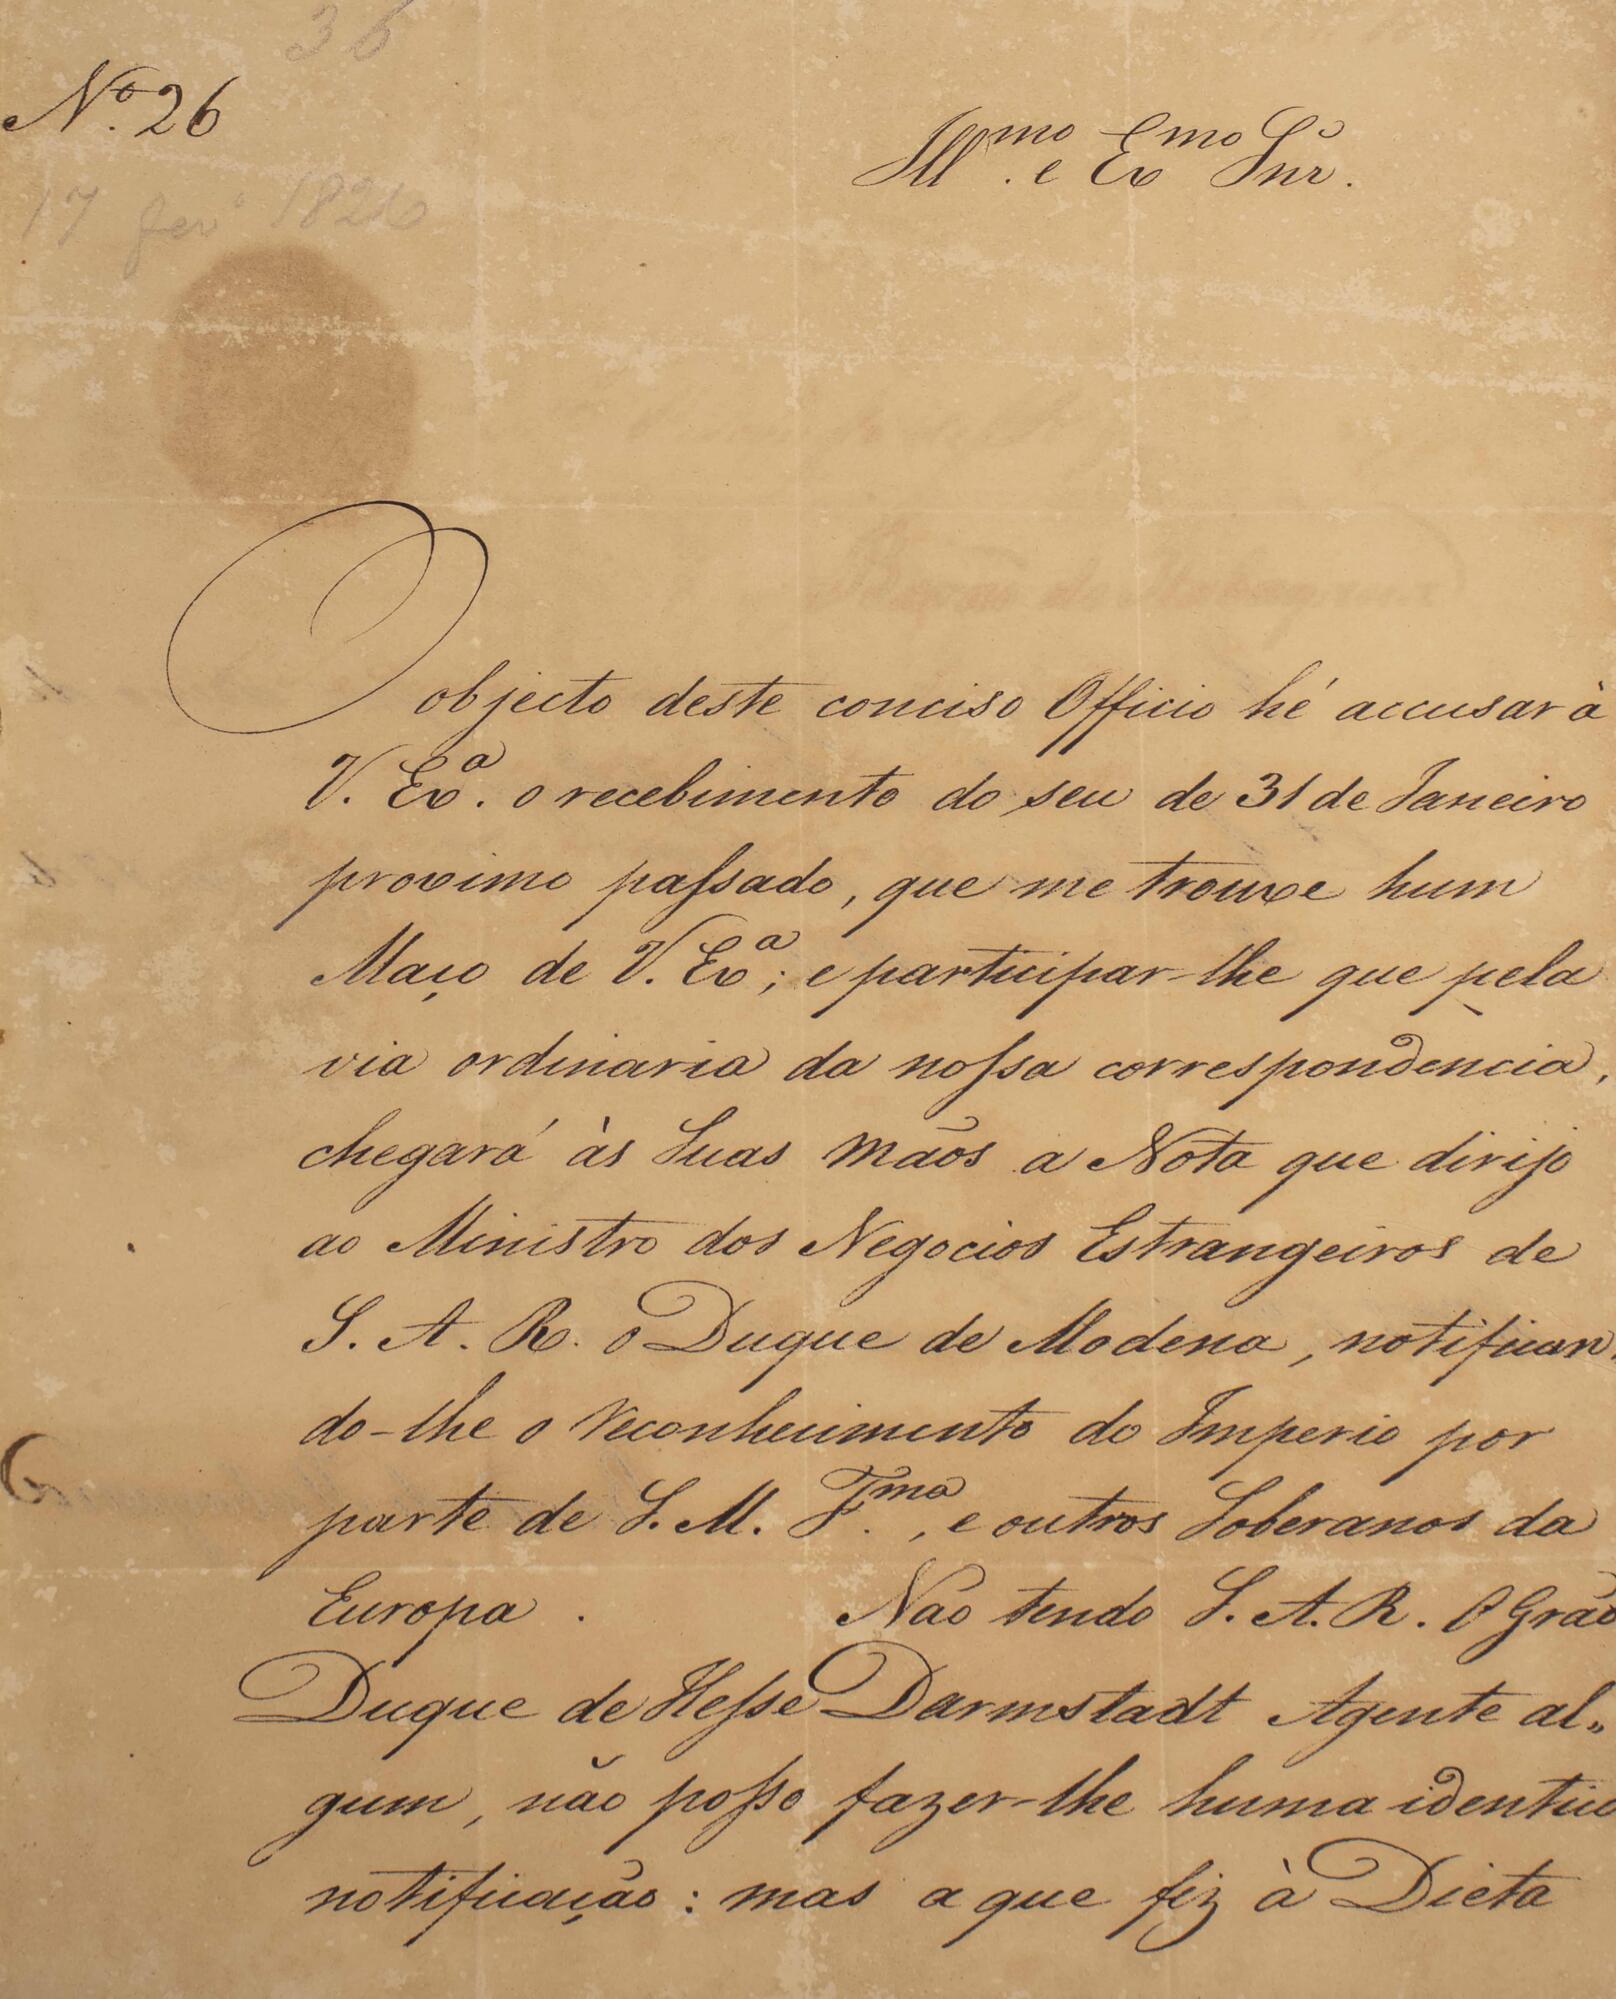 36
Nº. 26
Ill.mo e Exmo Snr.
17 fev.º 1826
O objecto deste conciso Officio hé accusar à
V. Ex.ª o recebimento do seu de 31 de Janeiro
proximo passado, que me trouxe hum
Maço de V. Ex.ª; e participar-lhe que pela
via ordinaria da nossa correspondencia,
chegará às Suas mãos a Nota que dirijo
ao Ministro dos Negocios Estrangeiros de
S. A. R. o Duque de Modena, notifican-
do-lhe o reconhecimento do Imperio por
parte de S. M. F.ma, e outros Soberanos da
Europa. Não tendo S. A. R. O Grão
Duque de Hesse Darmstadt Agente al-
gum, não posso fazer-lhe huma identica
notificação: mas a que fiz à Dieta